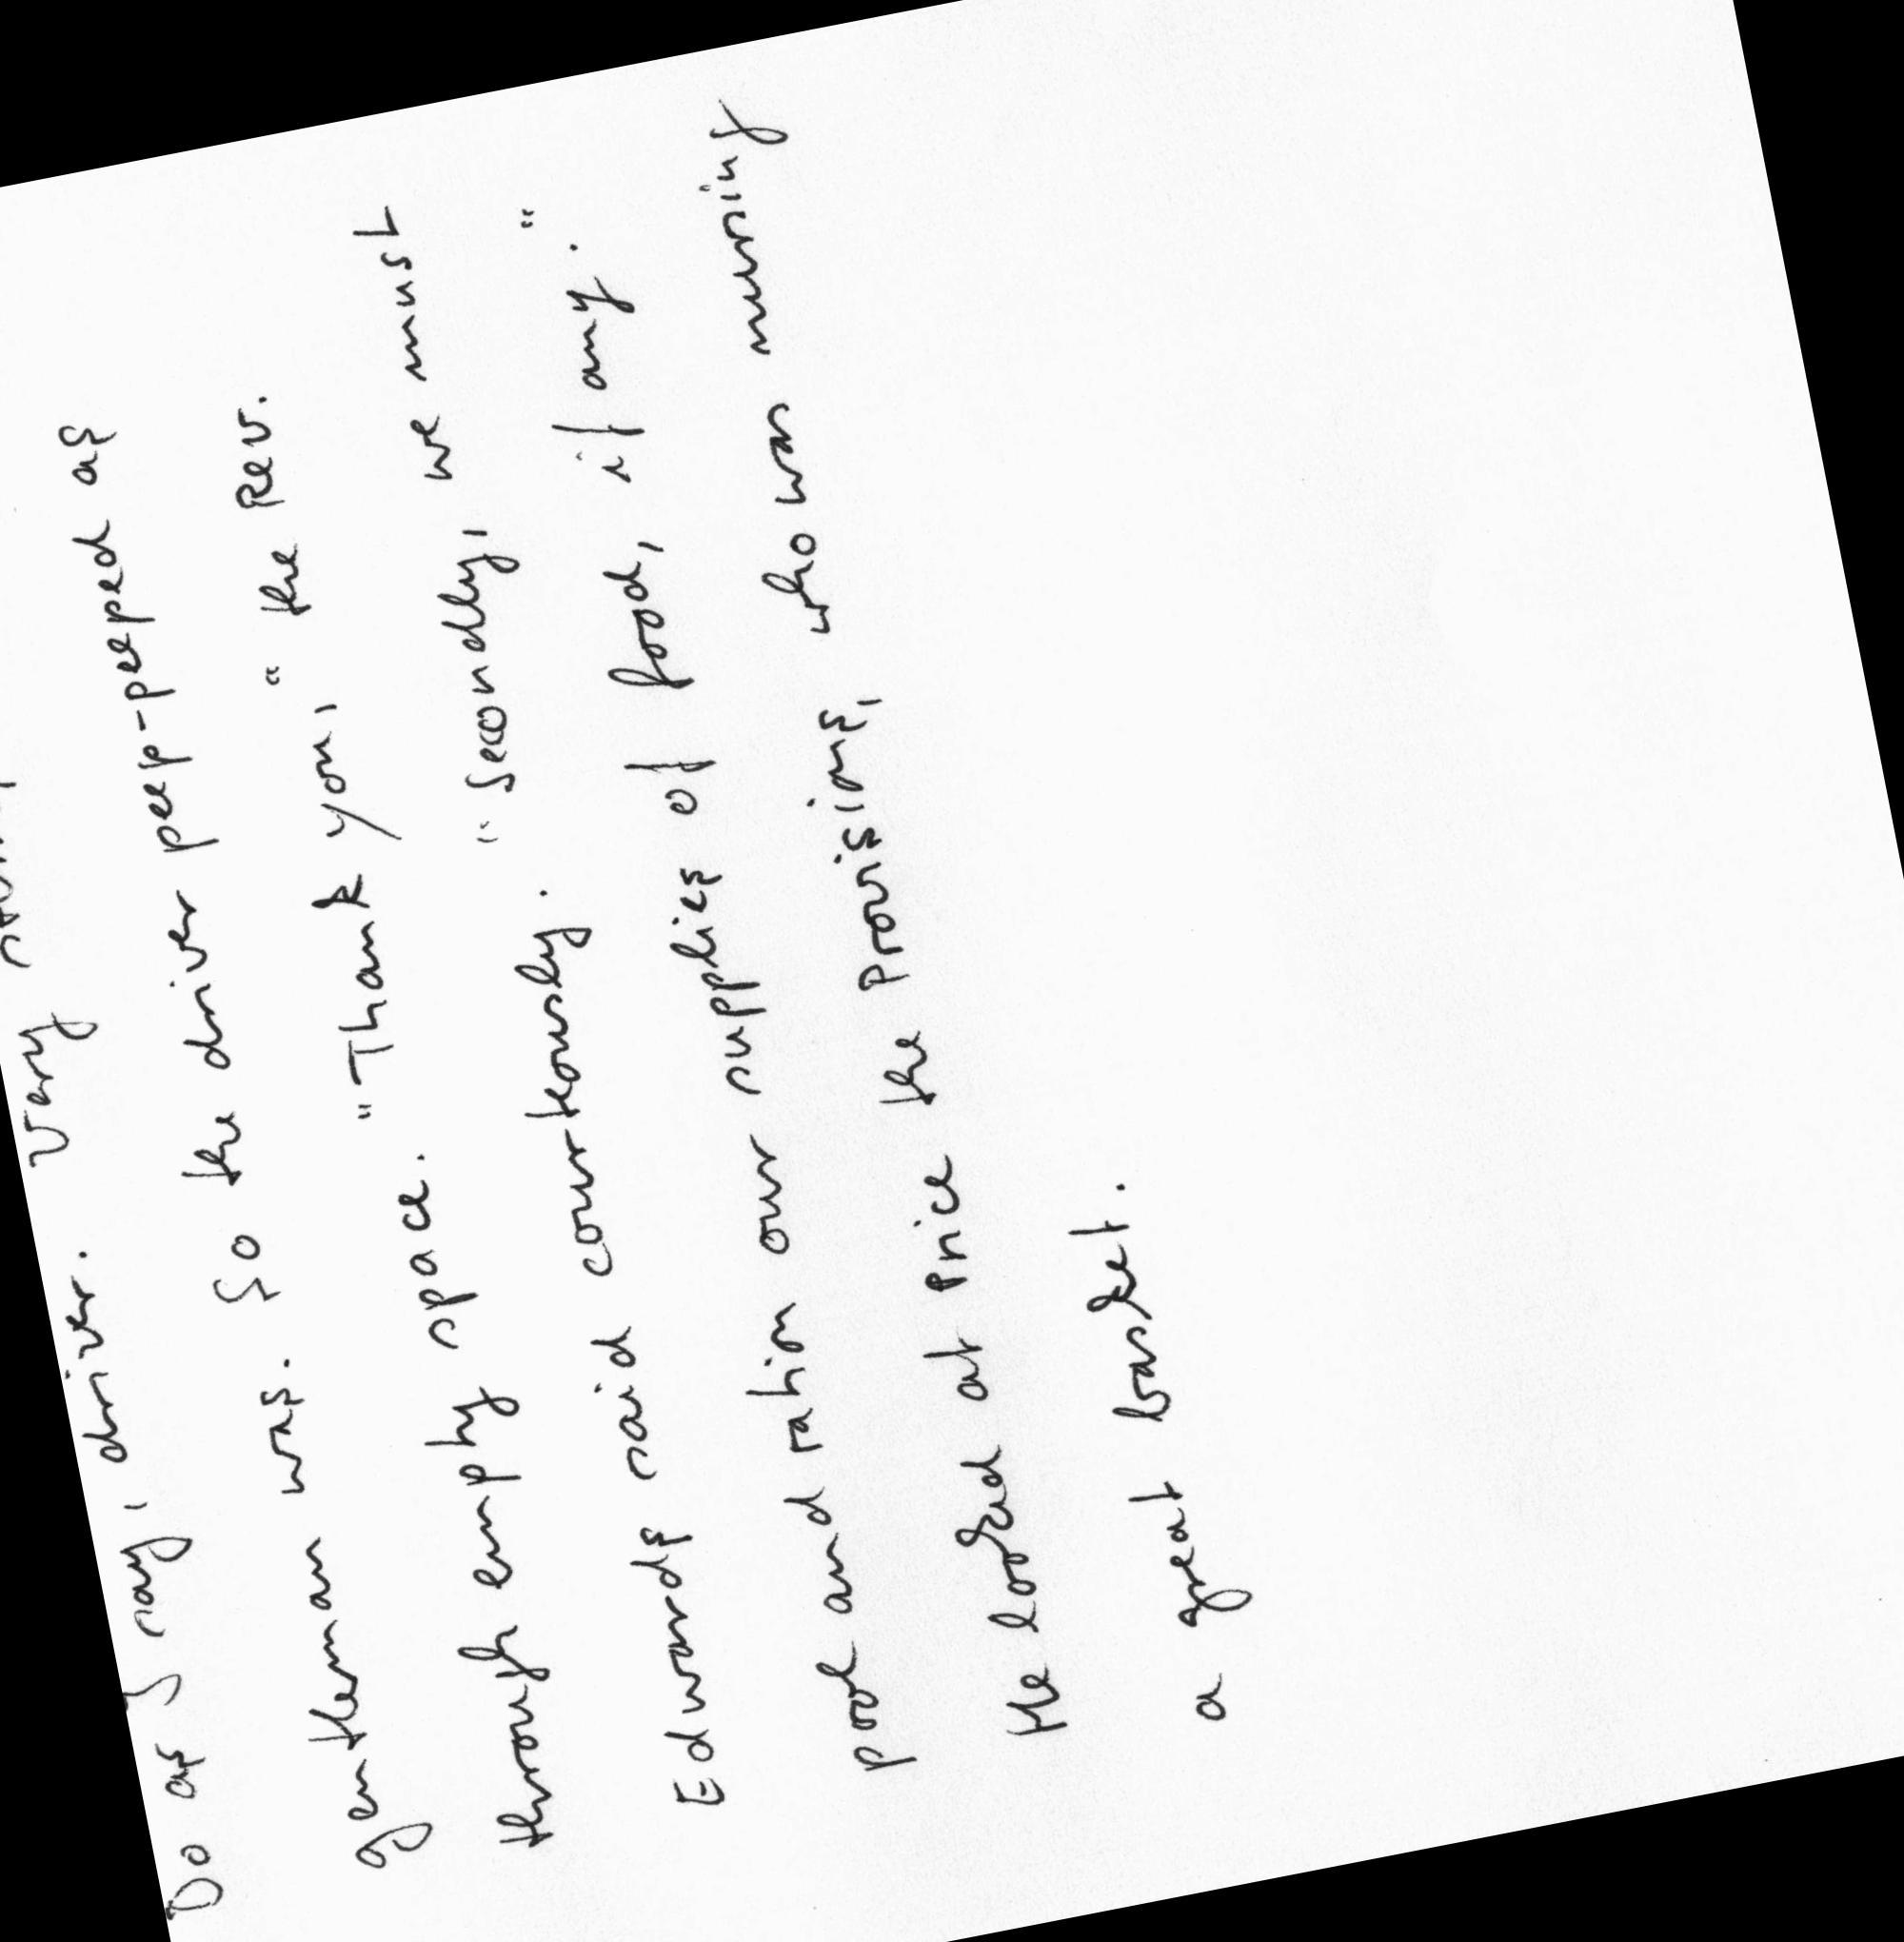 Do as I say, driver. Very
gentleman was. So the driver peep-peeped as
through empty space. "Thank you," the Rev.
Edwards said courteously. "Secondly, we must
pool and ration our supplies of food, if any."
He looked at Price the Provisions, who was nursing
a great basket.